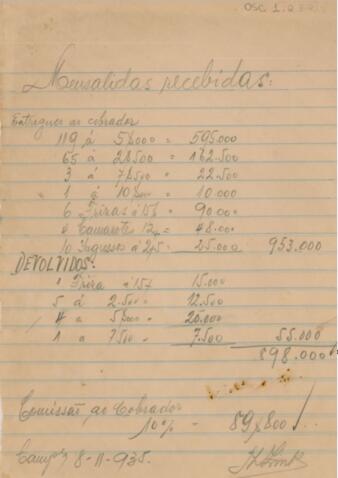 OSC. 1.0
Mensalidas recebidas:
Entregues ao cobrador
119 á 5$000 = 595.000
65 á 2$500 = 162.500
3 á 7$500 = 22.500
1 á 10$000 = 10.000
6 Frizas á 15$ = 90.000
4 Camarotes 12$ = 48.000
10 Ingressos á 2,5 = 25.000 953.000
DEVOLVIDOS:
1 Friza á 15$ 15.000
5 á 2.500 = 12.500
4 a 5$000 = 20.000
1 a 7$500 = 7.500 55.000
898.000
Comissão ao Cobrador
10% - 89$800
8-11-935.